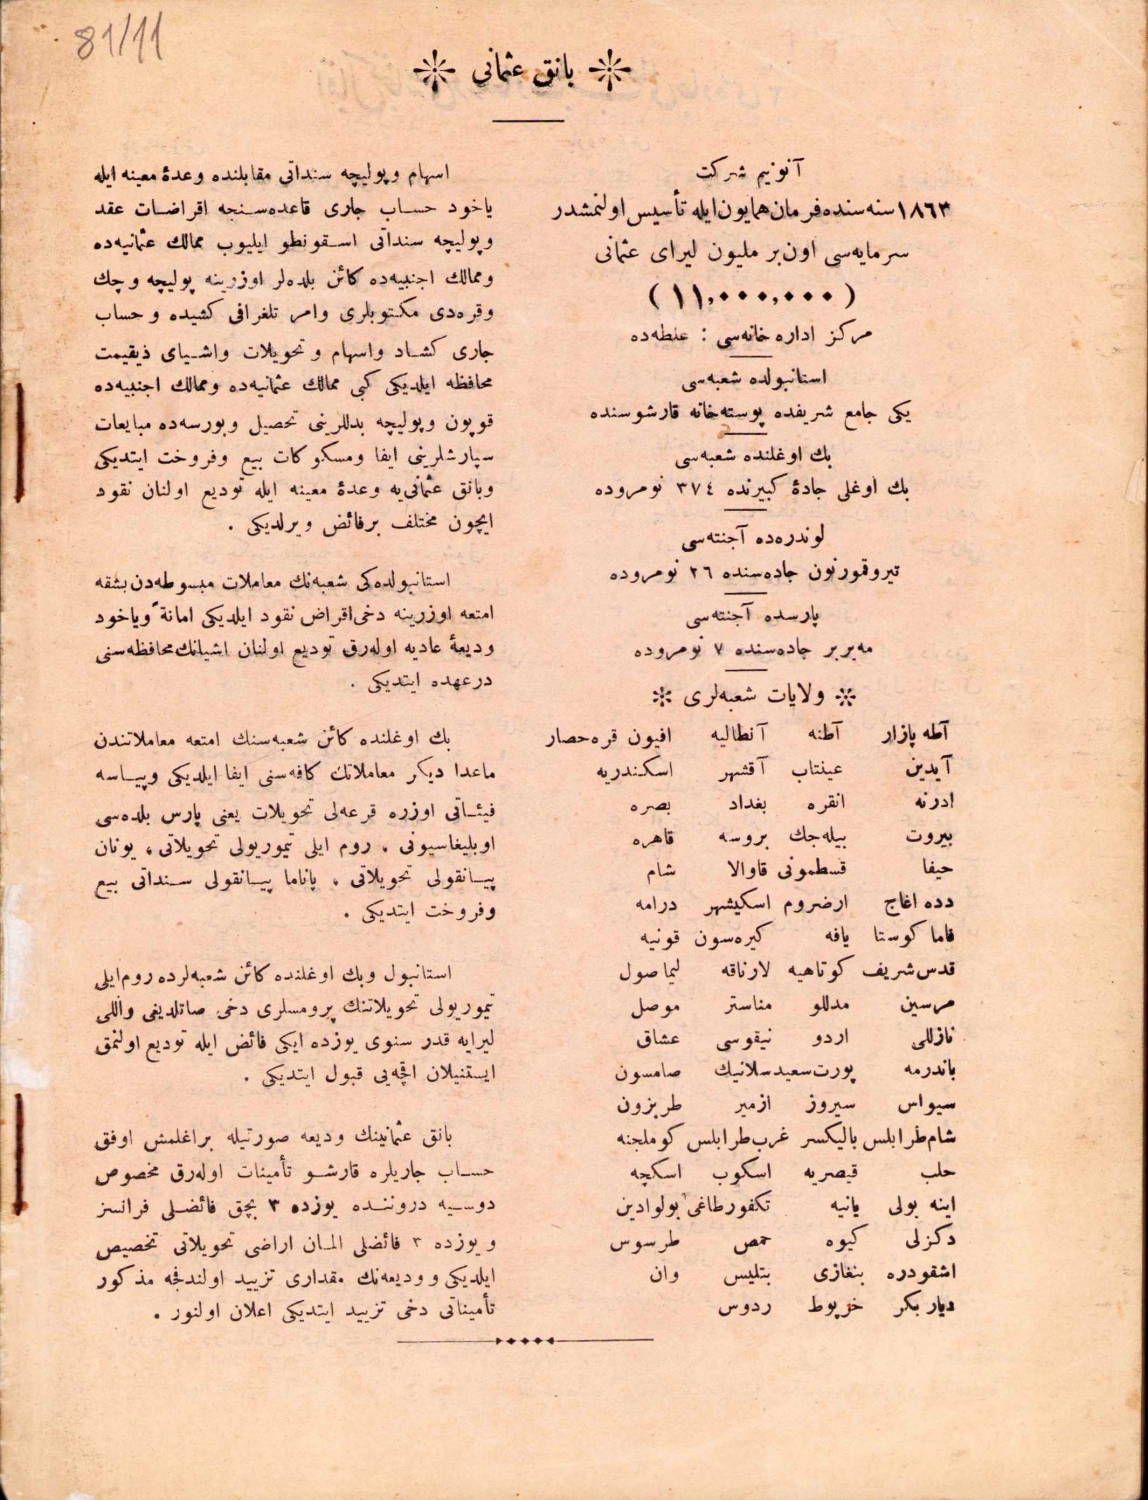 81/11
بانق عثمانی
آنونیم شرکت
١٨٦٣ سنه سنده فرمان همایون ایله تأسیس اولنمشدر
سرمایه سی اون بر ملیون لیرای عثمانی
(١١,٠٠٠,٠٠٠)
مرکز اداره خانه سی : غلطه ده
استانبولده شعبه سی
یکی جامع شریفده پوسته خانه قارشوسنده
بك اوغلنده شعبه سی
بك اوغلی جادۀ کبیرنده ٣٧٤ نومروده
لوندره ده آجنته سی
تیروقمورتون جاده سنده ٢٦ نومروده
پارسده آجنته سی
مه یربر جاده سنده ٧ نومروده
ولایات شعبه لری
آطه پازار آطنه آنطالیه افیون قره حصار
آیدین عینتاب آقشهر اسکندریه
ادرنه انقره بغداد بصره
بیروت بیله جك بروسه قاهره
حیفا قسطمونی قاوالا شام
دده اغاج ارضروم اسکیشهر درامه
فاما کوستا یافه کیره سون قونیه
قدس شریف کوتاهیه لارناقه لیماصول
مرسین مدللو مناستر موصل
نازللی اردو نیقوسی عشاق
باندرمه پورت سعید سلانیك صامسون
سیواس سیروز ازمیر طربزون
شام طرابلس بالیکسر غرب طرابلس کوملجنه
حلب قیصریه اسکوب اسکچه
اینه بولی یانیه تکفور طاغی بولوادین
دکزلی کیوه حمص طرسوس
اشقودره بنغازی بتلیس وان
دیار بکر خرپوط ردوس
اسهام و پولیچه سنداتی مقابلنده وعدۀ معینه ایله
یاخود حساب جاری قاعده سنجه اقراضات عقد
و پولیچه سنداتی اسقونطو ایلیوب ممالك عثمانیه ده
وممالك اجنبیه ده کائن بلده لر اوزرینه پولیچه و چك
وقره دی مکتوبلری وامر تلغرافی کشیده و حساب
جاری کشاد واسهام و تحویلات واشیای ذیقیمت
محافظه ایلدیکی کبی ممالك عثمانیه ده وممالك اجنبیه ده
قوپون و پولیچه بدللرینی تحصیل وبورسه ده مبایعات
سپارشلرینی ایفا ومسکوکات بیع وفروخت ایتدیکی
وبانق عثمانی یه وعدۀ معینه ایله تودیع اولنان نقود
ایچون مختلف برفائض ویرلدیکی .
استانبولده کی شعبه نك معاملات مبسوطه دن بشقه
امتعه اوزرینه دخی اقراض نقود ایلدیکی امانةً ویاخود
ودیعۀ عادیه اوله رق تودیع اولنان اشیانك محافظه سنی
درعهده ایتدیکی .
بك اوغلنده کائن شعبه سنك امتعه معاملاتندن
ماعدا دیکر معاملاتك کافه سنی ایفا ایلدیکی وپیاسه
فیئاتی اوزره قرعه لی تحویلات یعنی پارس بلده سی
اوبلیغاسیونی ، روم ایلی تیموریولی تحویلاتی ، یونان
پیانقولی تحویلاتی ، پاناما پیانقولی سنداتی بیع
وفروخت ایتدیکی .
استانبول وبك اوغلنده کائن شعبه لرده روم ایلی
تیموریولی تحویلاتنك پرومسلری دخی صاتلدیغی واللی
لیرایه قدر سنوی یوزده ایکی فائض ایله تودیع اولنمق
ایستنیلان اقچه یی قبول ایتدیکی .
بانق عثمانینك ودیعه صورتیله براغلمش اوفق
حساب جاریلره قارشو تأمینات اوله رق مخصوص
دوسیه دروننده یوزده ٣ بچق فائضلی فرانسز
و یوزده ٣ فائضلی المان اراضی تحویلاتی تخصیص
ایلدیکی وودیعه نك مقداری تزیید اولندقجه مذکور
تأمیناتی دخی تزیید ایتدیکی اعلان اولنور .